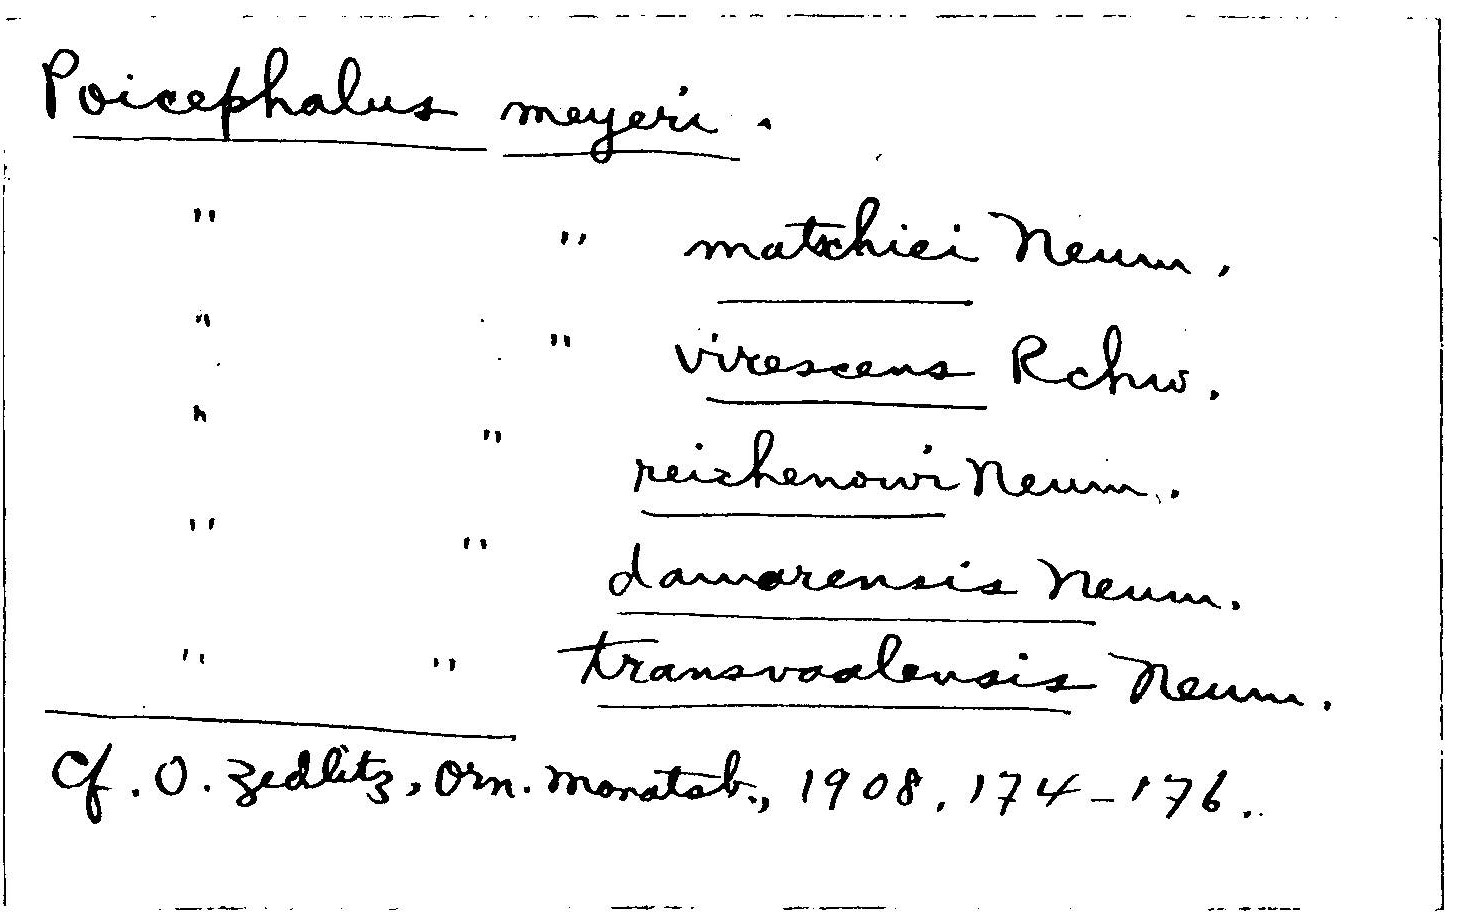 Poicephalus meyeri.
" " matschiei Neum.
" " virescens Rchw.
" " reichenowi Neum.
" " damarensis Neum.
" " transvaalensis Neum.
Cf. O. Zedlitz, Orn. Monatsb., 1908, 174-176.